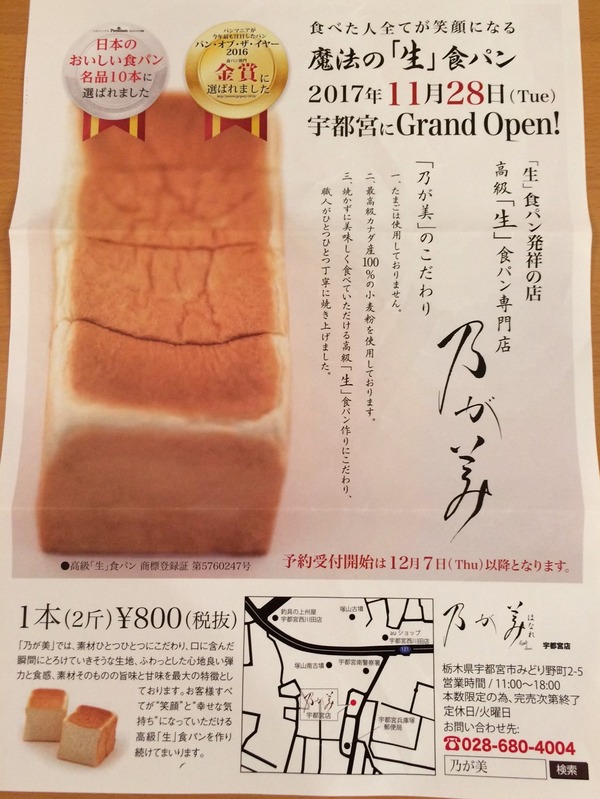 日本の
おいしい食パン
名品10本に
選ばれました
パンマニアが
今年最も注目したパン
パン・オブ・ザ・イヤー
2016
食パン部門
金賞に
選ばれました
食べた人全てが笑顔になる
魔法の「生」食パン
2017年11月28日(Tue)
宇都宮にGrand Open!
「生」食パン発祥の店
高級「生」食パン専門店
乃が美
「乃が美」のこだわり
一、たまごは使用しておりません。
二、最高級カナダ産100%の小麦粉を使用しております。
三、焼かずに美味しく食べていただける高級「生」食パン作りにこだわり、
職人がひとつひとつ丁寧に焼き上げました。
●高級「生」食パン 商標登録証 第5760247号
予約受付開始は12月7日(Thu)以降となります。
1本(2斤)¥800(税抜)
「乃が美」では、素材ひとつひとつにこだわり、口に含んだ
瞬間にとろけていきそうな生地、ふわっとした心地良い弾
力と食感、素材そのものの旨味と甘味を最大の特徴とし
ております。お客様すべ
てが“笑顔”と“幸せな気
持ち”になっていただける
高級「生」食パンを作り
続けてまいります。
釣具の上州屋
宇都宮西川田店
塚山古墳
auショップ
宇都宮西川田店
121
塚山南古墳
宇都宮南警察署
乃が美
宇都宮店
宇都宮兵庫塚
郵便局
乃が美
はなれ
宇都宮店
栃木県宇都宮市みどり野町2-5
営業時間/11:00〜18:00
本数限定の為、完売次第終了
定休日/火曜日
お問い合わせ先:
☎028-680-4004
乃が美 検索